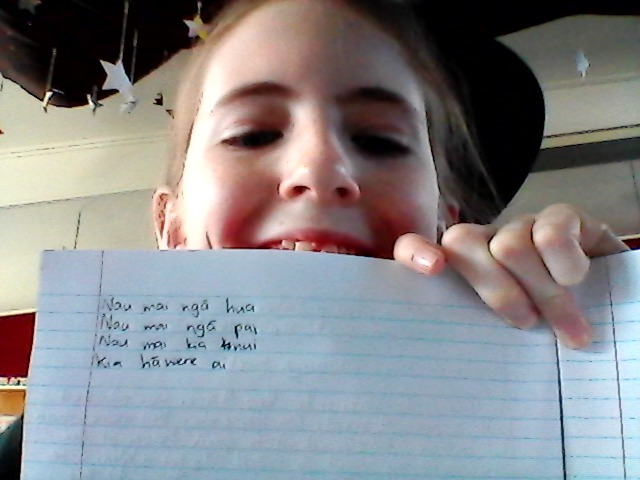 Nau mai ngā hua
Nau mai ngā pai
Nau mai kia nui
Kia hāwere ai